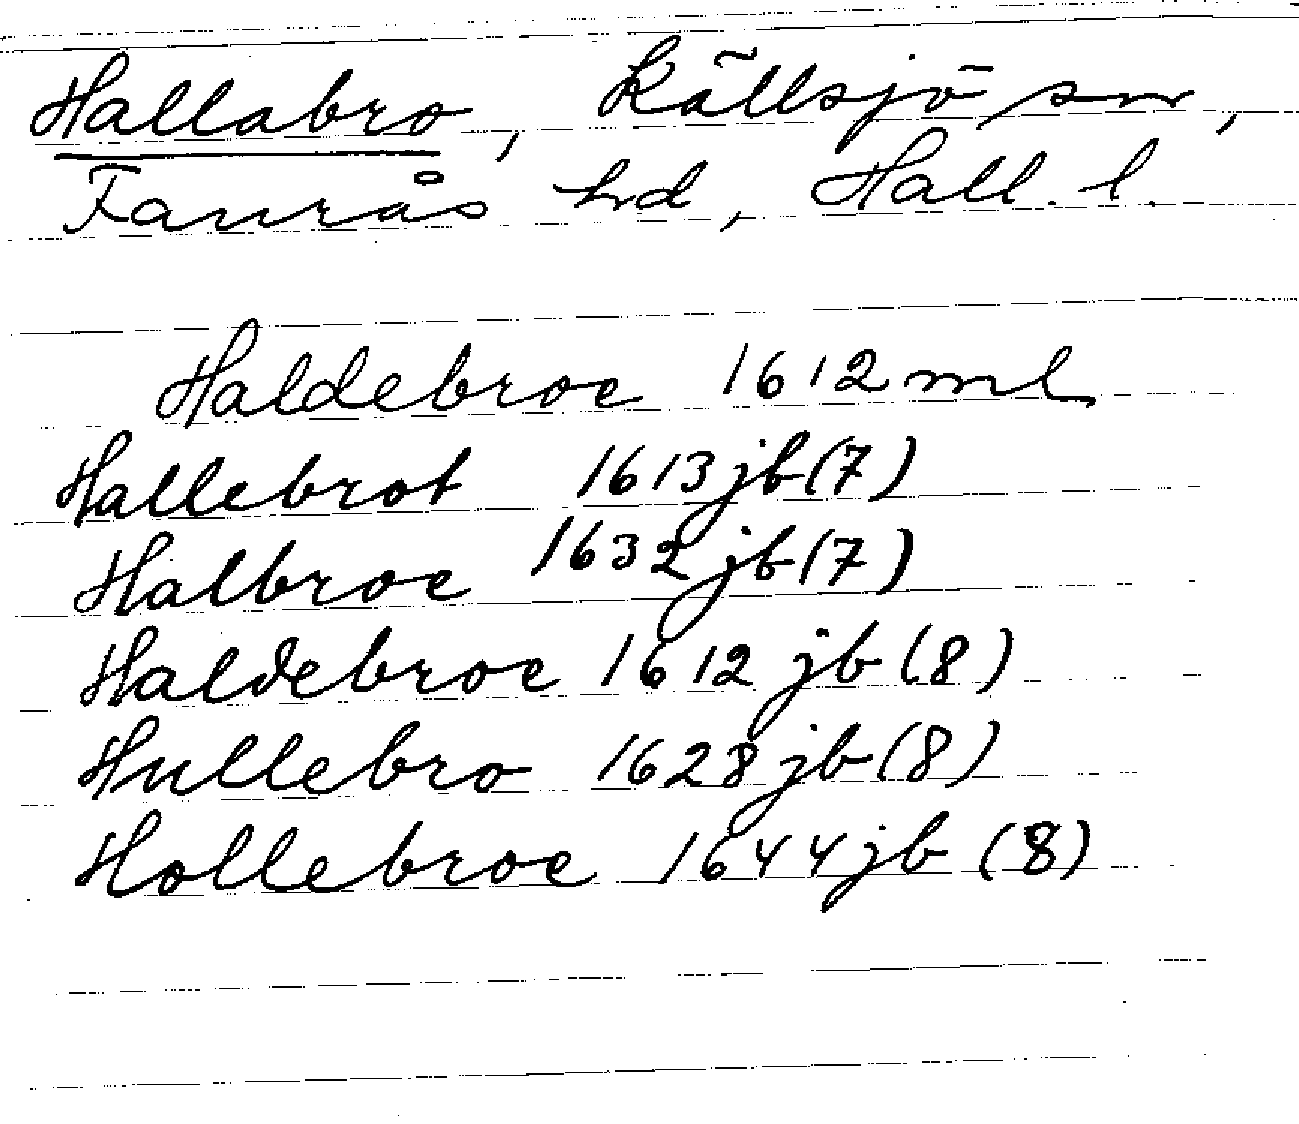 Hallabro, Källsjö sn,
Faurås hd, Hall. l.
Haldebroe 1612 ml
Hallebrot 1613 jb (7)
Halbroe 1632 jb (7)
Haldebroe 1612 jb (8)
Hullebro 1628 jb (8)
Hollebroe 1644 jb (8)